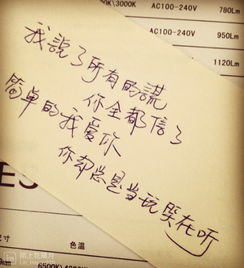 \3000K
AC100-240V
780Lm
AC100-240V
950Lm
1120Lm
我説了所有的謊
你全都信了
簡单的我爱你
你却总是当玩笑在听
ES
尺寸
色温